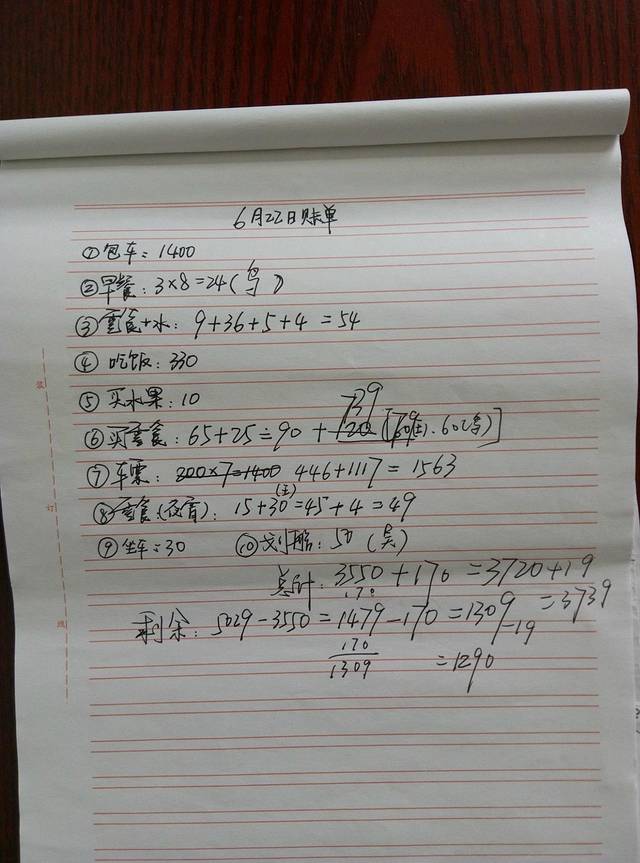 6月22日账单
①包车:1400
②早餐:3×8=24( )
③零食+水:9+36+5+4=54
④吃饭:330
⑤买水果:10
139
⑥买零食:65+25=90+120[ .60( )]
⑦车票:200×7=1400 446+1117=1563
⑧零食(夜宵):15+30=45+4=49
⑨坐车:30 ⑩划船:50(吴)
总计:3550+170=3720+19
170 =3739
剩余:5029-3550=1479-170=1309
170 -19
1309 =1290
装
订
线